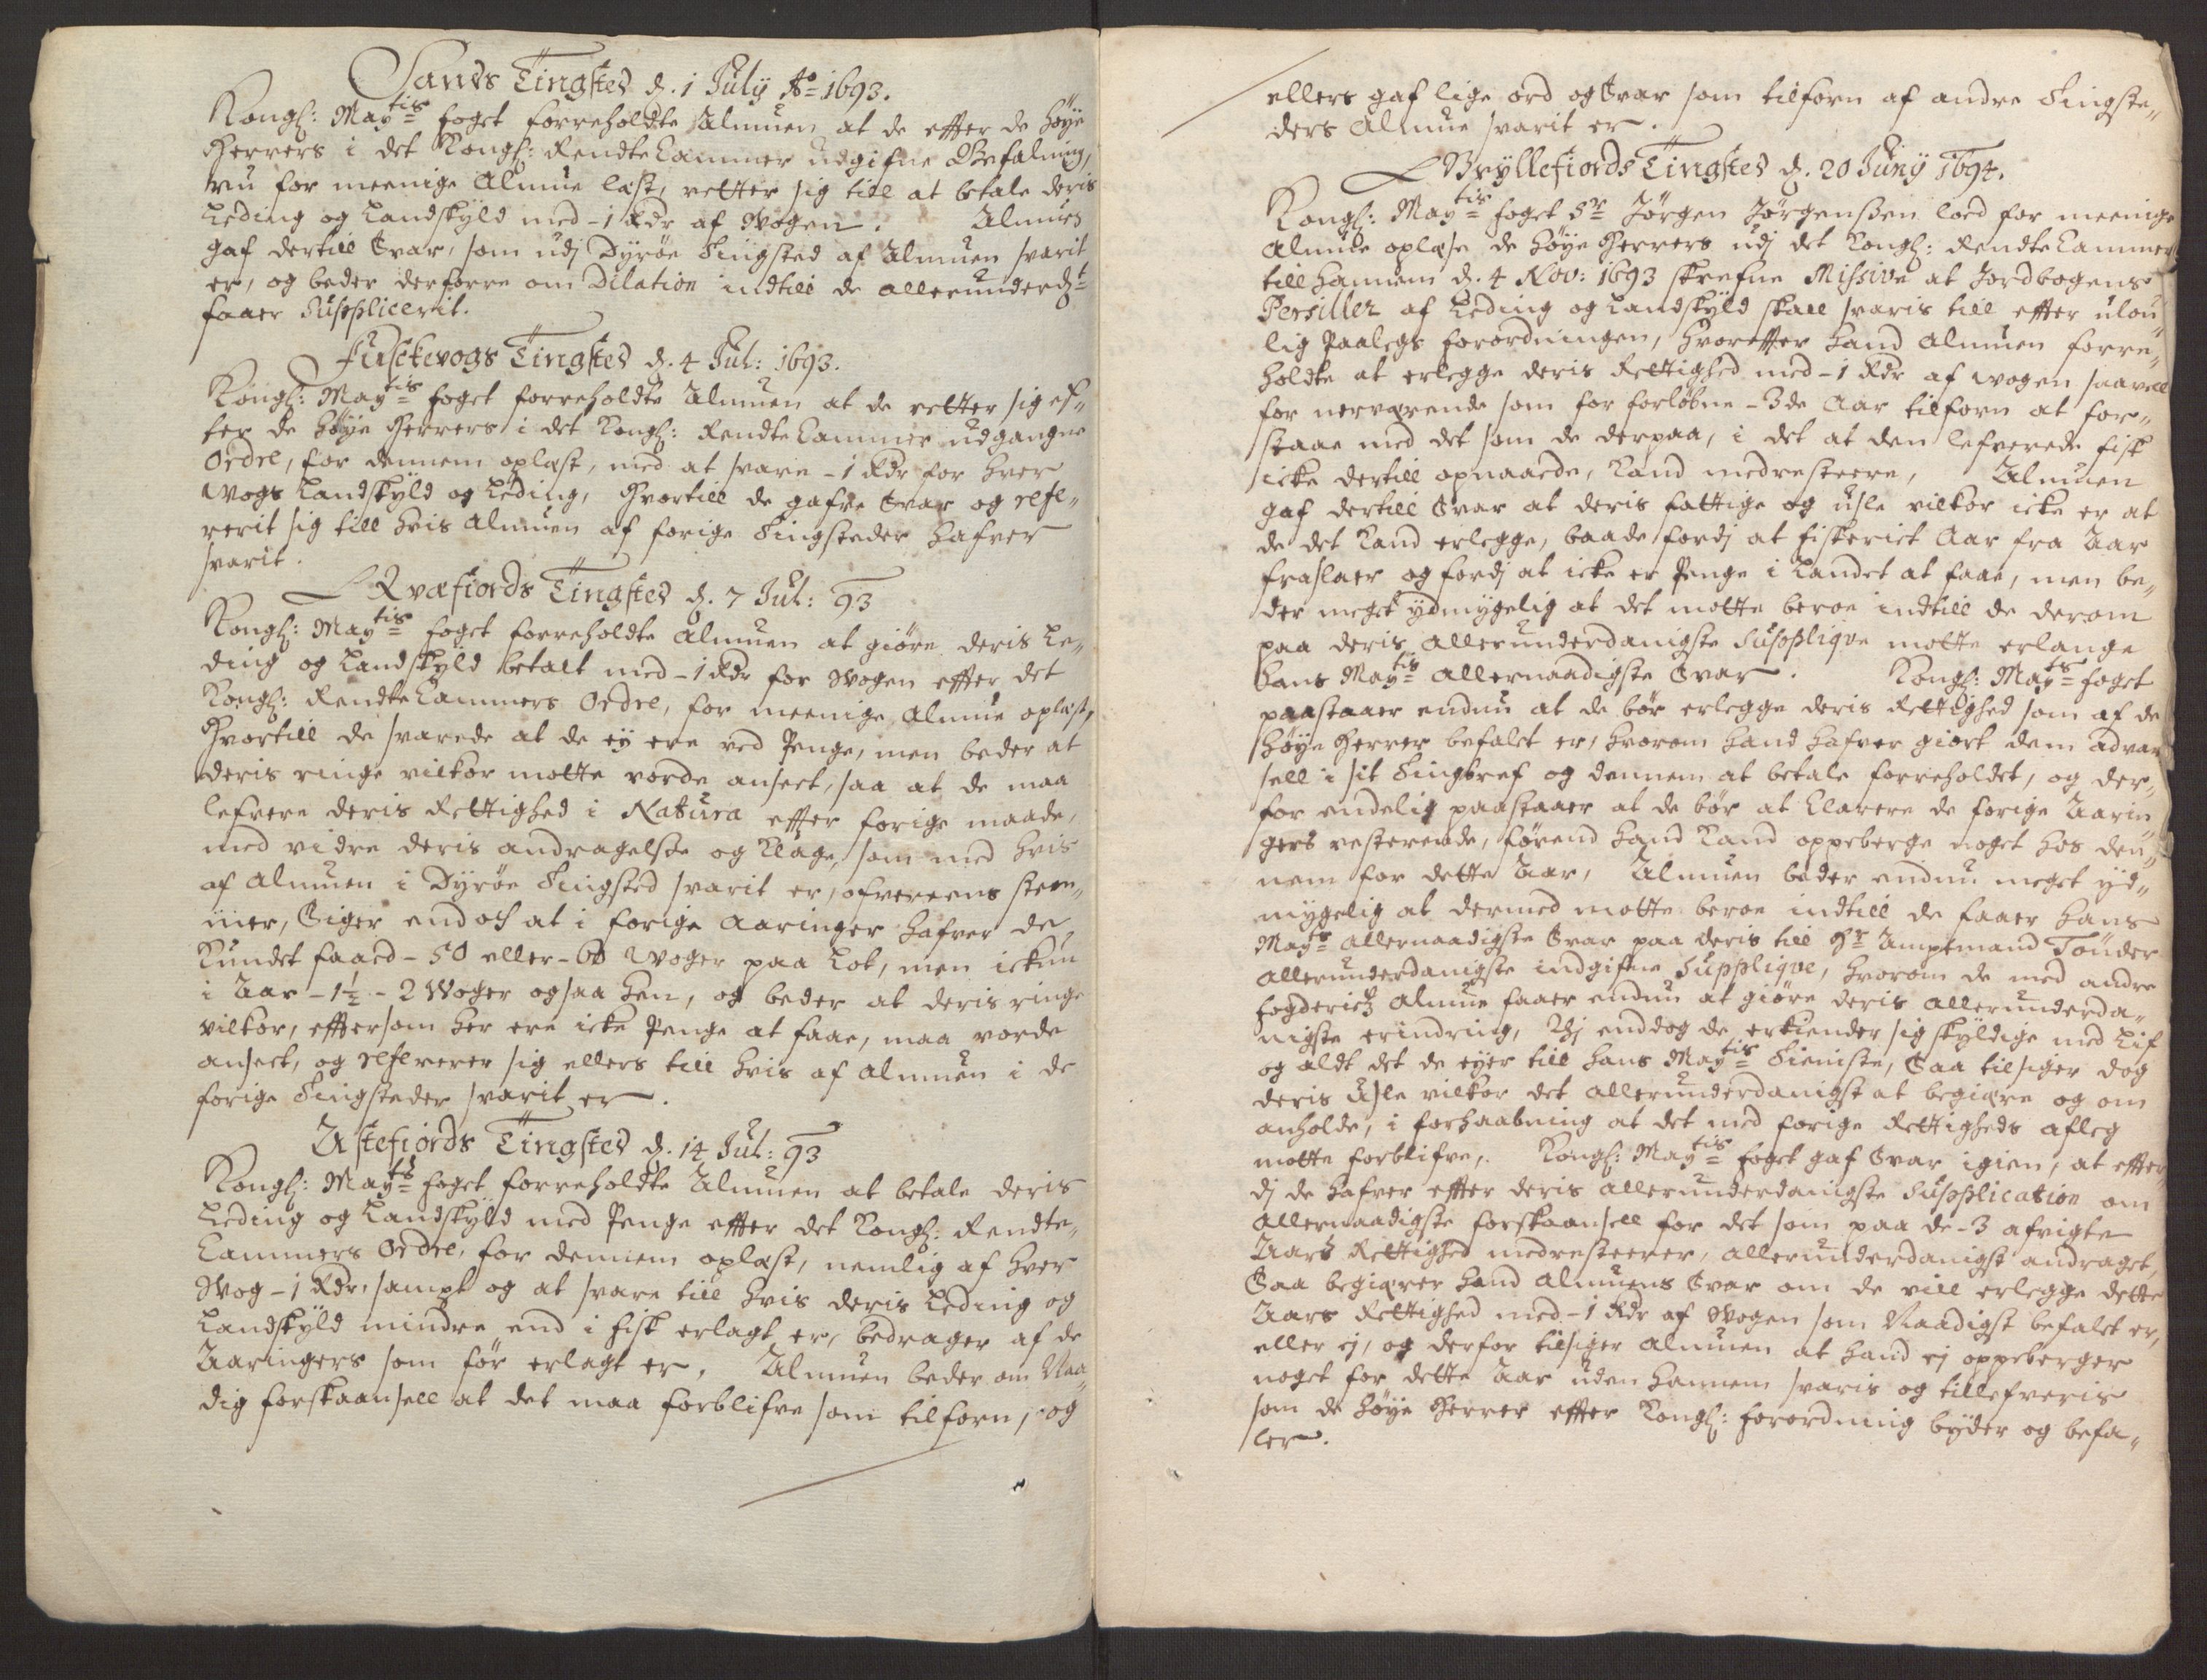 Sands Tingsted d. 1 July Ao 1693.
Kongl: Maytis foget forreholdte Almuen at de effter de høye
Herrers i det Kongl: RendteCammer udgifne Befalning,
nu for meenige Almue læst, retter sig till at betale deris
Leding og Landskyld med - 1 Rdr af Wogen. Almuen
gaf dertill Svar, som udj Dyrøe Tingsted af Almuen svarit
er, og beder derforre om Dilation indtill de allerunderdt
faaer Supplicerit.
Fuskevogs Tingsted d. 4 Jul: 1693.
Kongl: Maytis foget forreholdte Almuen at de retter sig ef-
ter de høye Herrers i det Kongl: RendteCammer udgangne
Ordre, for dennem oplæst, med at svare - 1 Rdr for hver
Wogs Landskyld og Leding, Hvortill de gafve Svar og refe-
rerit sig till hvis Almuen af forige Tingsteder hafver
svarit.
Qvæfiords Tingsted d. 7 Jul: 93
Kongl: Maytis foget forreholdte Almuen at giøre deris Le-
ding og Landskyld betalt med - 1 Rdr for Wogen effter det
Kongl: RendteCammers Ordre, for meenige Almue oplæst,
Hvortill de svarede at de ey ere ved Penge, men beder at
deris ringe vilkor motte vorde anseet, saa at de maa
lefvere deris Rettighed i Natura effter forige maade,
med vidre deris andragelse og Klage, som med hvis
af Almuen i Dyrøe Tingsted svarit er, ofvereens stem-
mer, Siger endoch at i forige Aaringer hafver de
Kundet faaed - 50 eller - 60 Woger paa Lot, men ickun
i Aar - 1½ - 2 Woger ogsaa hen, og beder at deris ringe
vilkor, efftersom her ere icke Penge at faae, maa vorde
anseet, og refererer sig ellers till hvis af Almuen i de
forige Tingsteder svarit er.
Astefiords Tingsted d. 14 Jul: 93
Kongl: Mayts foget forreholdte Almuen at betale deris
Leding og Landskyld med Penge effter det Kongl: Rendte-
Cammers Ordre, for dennem oplæst, nemlig af hver
Wog - 1 Rdr, sampt og at svare till hvis deris Leding og
Landskyld mindre end i fisk erlagt er, bedrager af de
Aaringers som før erlagt er, Almuen beder om Naa-
dig forskaansell at det maa forblifve som tilforn, og
ellers gaf lige ord og Svar som tilforn af andre Tingste-
ders Almue svarit er.
Gryllefiords Tingsted d. 20 Juny 1694.
Kongl: Maytis foget Sr Jørgen Jørgensen loed for meenige
Almue oplæse de høye Herrers udj det Kongl: RendteCammer
till hannem d. 4 Nov: 1693 skrefne Missive at Jordbogens
Persiller af Leding og Landskyld skall svaris till effter ulou-
lig Paalegs forordningen, hvoreffter hand Almuen forre-
holdte at erlegge deris Rettighed med - 1 Rdr af Wogen saavell
for nerværende som for forløbne - 3de Aar tilforn at for-
staae med det som de derpaa, i det at den lefverede fisk
icke dertill opnaaede, Kand medresteere, Almuen
gaf dertill Svar at deris fattige og usle vilkor icke er at
de det Kand erlegge, baade fordj at fiskeriet Aar fra Aar
fraslaer og fordj at icke er Penge i Landet at faae, men be-
der meget ydmygelig at det motte beroe indtill de derom
paa deris allerunderdanigste Suppliqve motte erlange
Hans Maytis allernaadigste Svar. Kongl: Mayts foget
paastaaer endnu at de bør erlegge deris Rettighed som af de
høye Herrer befalet er, hvorom hand hafver giort dem advar
sell i sit Tingbref og dennem at betale forreholdet, og der-
for endelig paastaaer at de bør at Clarere de forige Aarin
gers resterende, førend hand Kand oppeberge noget hos den-
nem for dette Aar, Almuen beder endnu meget yd-
mygelig at dermed motte beroe indtill de faaer Hans
Mayts allernaadigste Svar paa deris till Hr Amptmand Tønder
allerunderdanigste indgifne Suppliqve, hvorom de med andre
fogderietz Almue faaer endnu at giøre deris allerunderda-
nigste erindring, Thj enddog de erkiender sig skyldige med Lif
og aldt det de eyer till Hans Maytis Tieniste, Saa tilsiger dog
deris usle vilkor det allerunderdanigst at begiære og om
anholde, i forhaabning at det med forige Rettigheds afleg
motte forblifve. Kongl: Maytis foget gaf Svar igien, at effter
dj de hafver effter deris allerunderdanigste Supplication om
allernaadigste forskaansell for det som paa de - 3 afvigte
Aars Rettighed medresteerer, allerunderdanigst andraget,
Saa begiærer hand Almuens Svar om de vill erlegge dette
Aars Rettighed med - 1 Rdr af Wogen som Naadigst befalet er,
eller ej, og derfor tilsiger Almuen at hand ej oppeberger
noget for dette Aar uden hannem svaris og tillefveris
som de høye Herrer effter Kongl: forordning byder og befa-
ler.